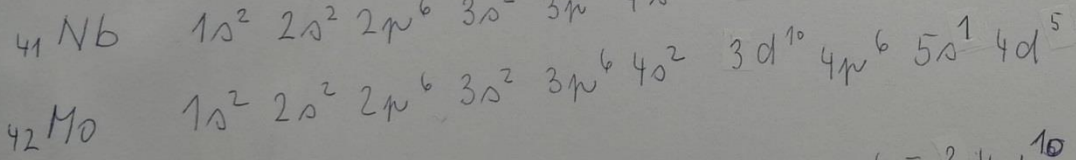 ₄₁Nb 1s² 2s² 2p⁶ 3s² 3p
₄₂Mo 1s² 2s² 2p⁶ 3s² 3p⁶ 4s² 3d¹⁰ 4p⁶ 5s¹ 4d⁵
10